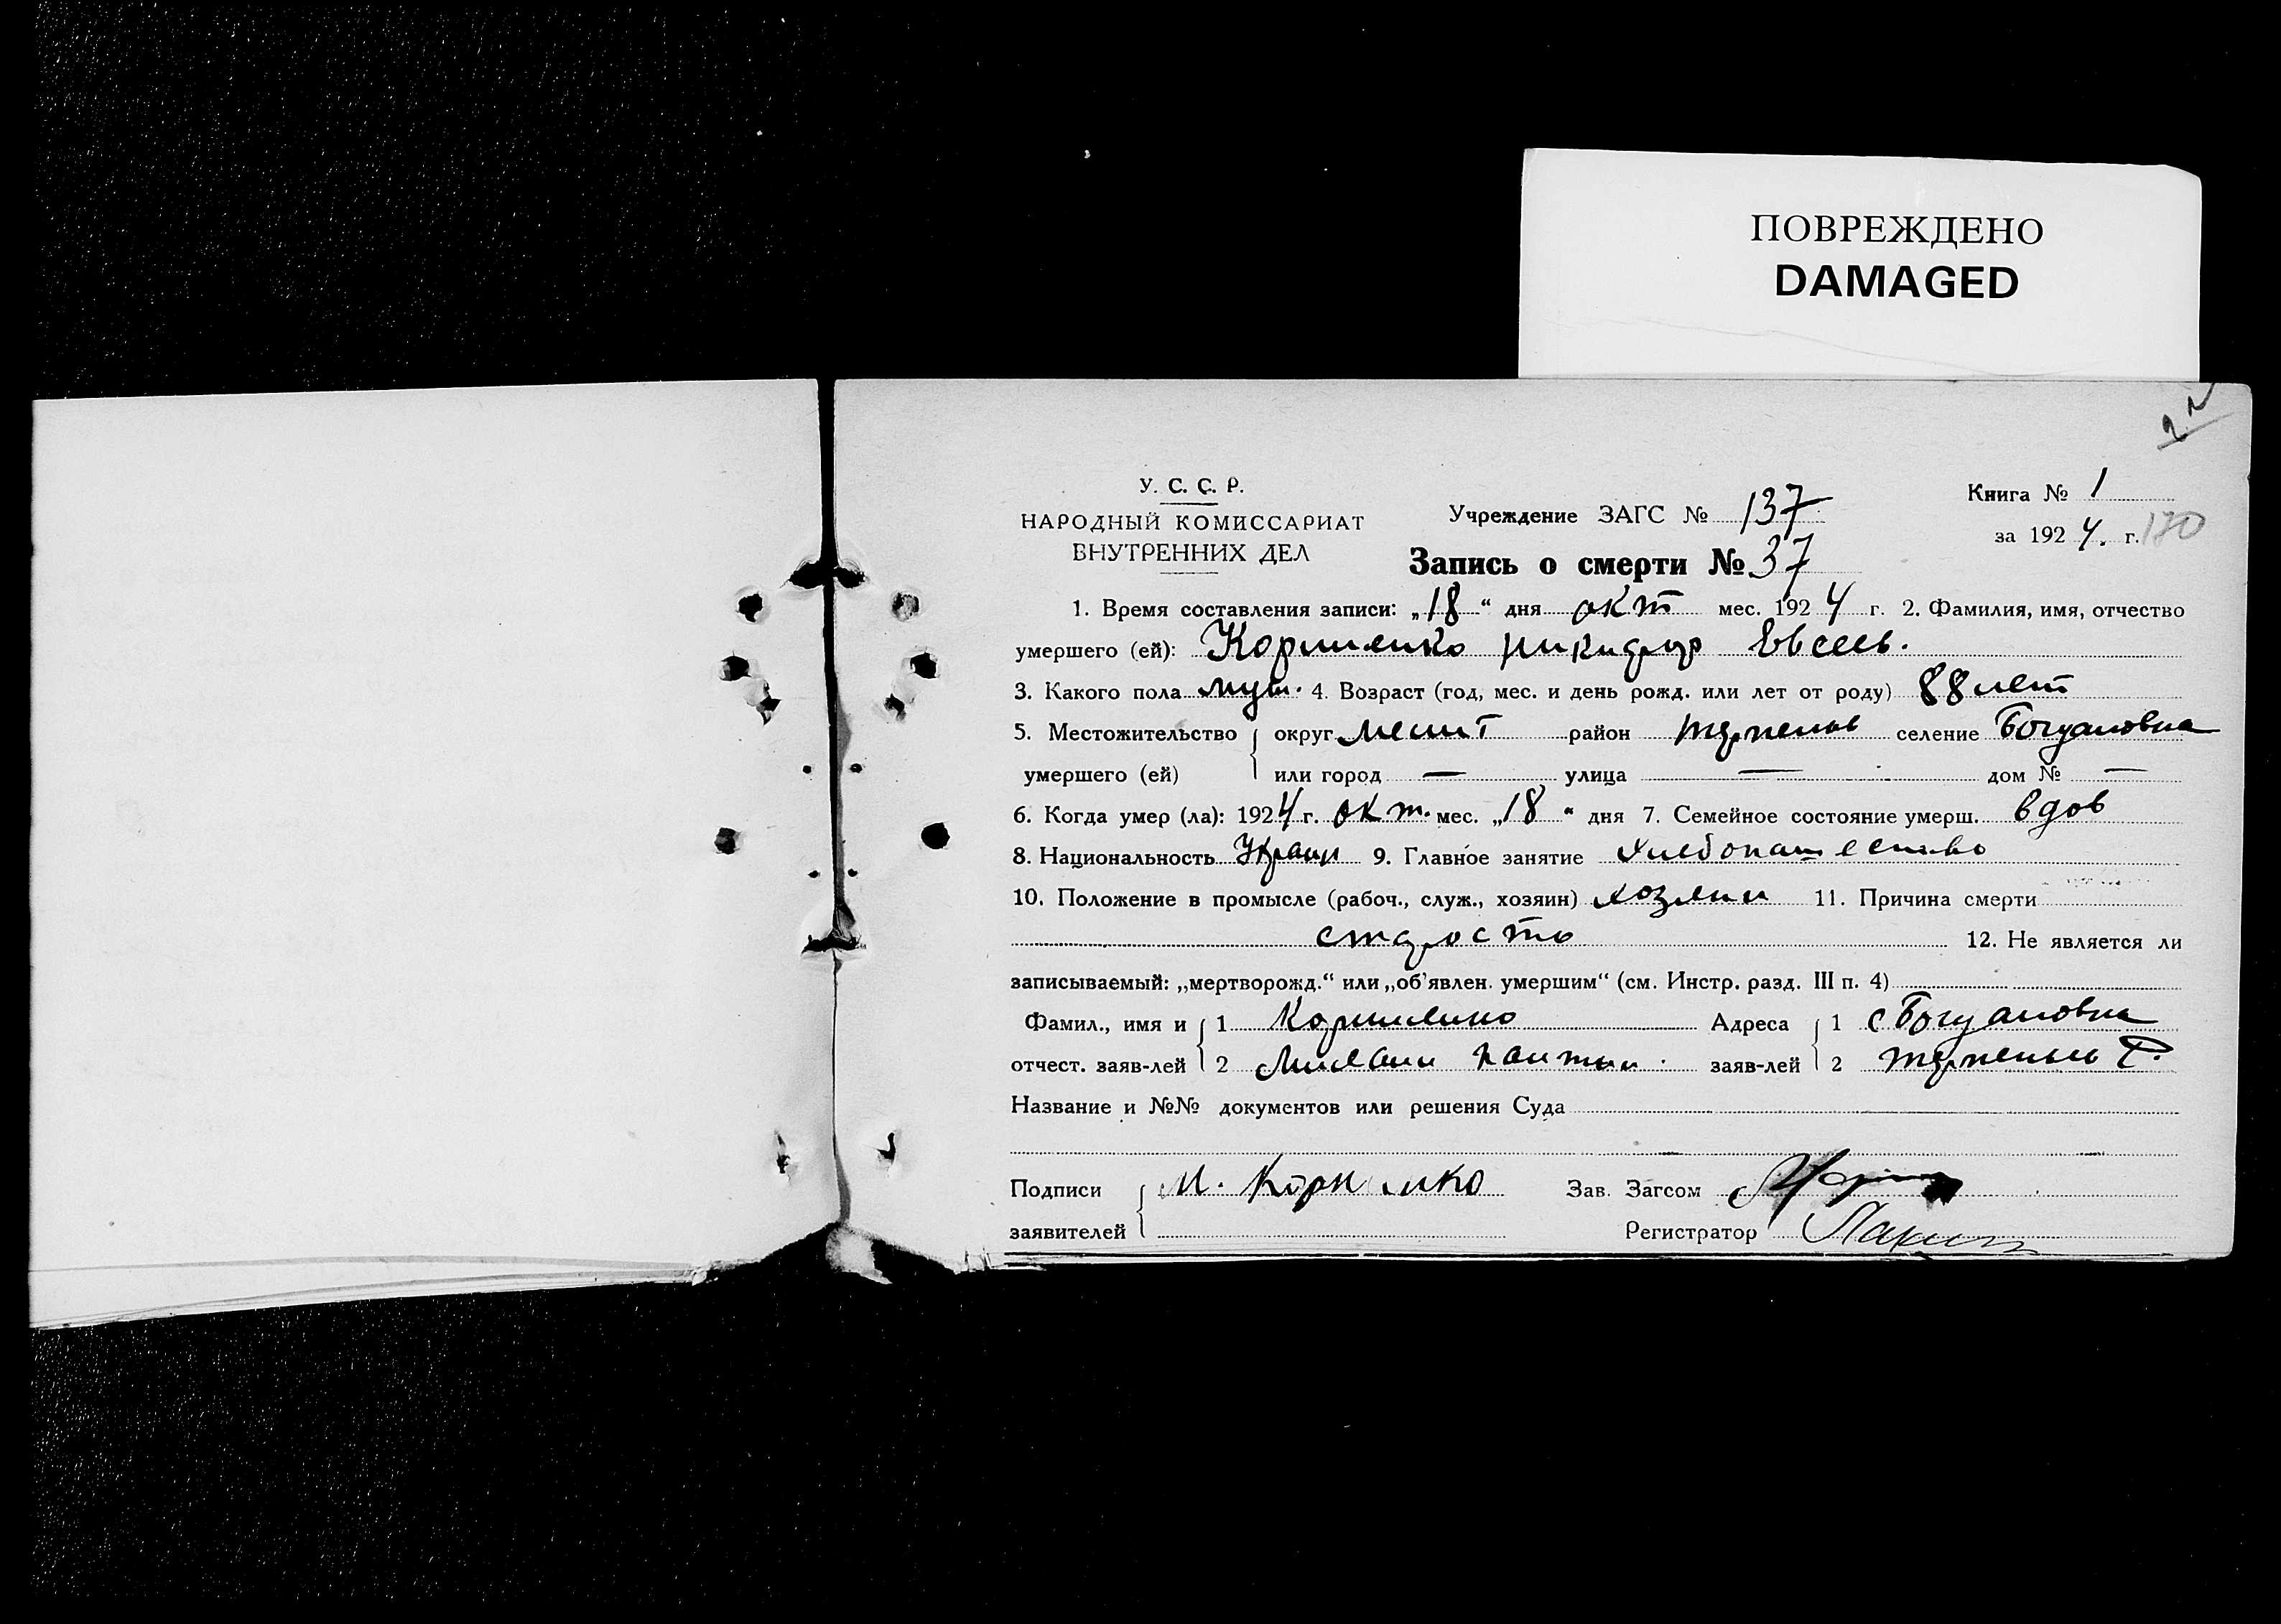 ПОВРЕЖДЕНО
DAMAGED
У. С. С. Р.
НАРОДНЫЙ КОМИССАРИАТ
ВНУТРЕННИХ ДЕЛ
Учреждение ЗАГС № 137
Книга № 1
за 1924. г. 170
Запись о смерти № 37
1. Время составления записи: „18“ дня окт мес. 1924 г. 2. Фамилия, имя, отчество
умершего (ей): Корниенко Никифор Евсеев.
3. Какого пола муж. 4. Возраст (год, мес. и день рожд. или лет от роду) 88 лет
5. Местожительство округ Мелит район Терпеньев селение Богдановка
умершего (ей) или город — улица — дом № —
6. Когда умер (ла): 1924 г. окт. мес. „18“ дня 7. Семейное состояние умерш. вдов
8. Национальность Украин 9. Главное занятие Хлебопашество
10. Положение в промысле (рабоч., служ., хозяин) хозяин 11. Причина смерти
старость 12. Не является ли
записываемый: „мертворожд.“ или „об'явлен. умершим“ (см. Инстр. разд. III п. 4)
Фамил., имя и 1 Корниенко Адреса 1 с Богдановка
отчест. заяв-лей 2 заяв-лей 2 Терпеньев Р.
Название и №№ документов или решения Суда
Подписи М. Корниенко Зав. Загсом
заявителей Регистратор